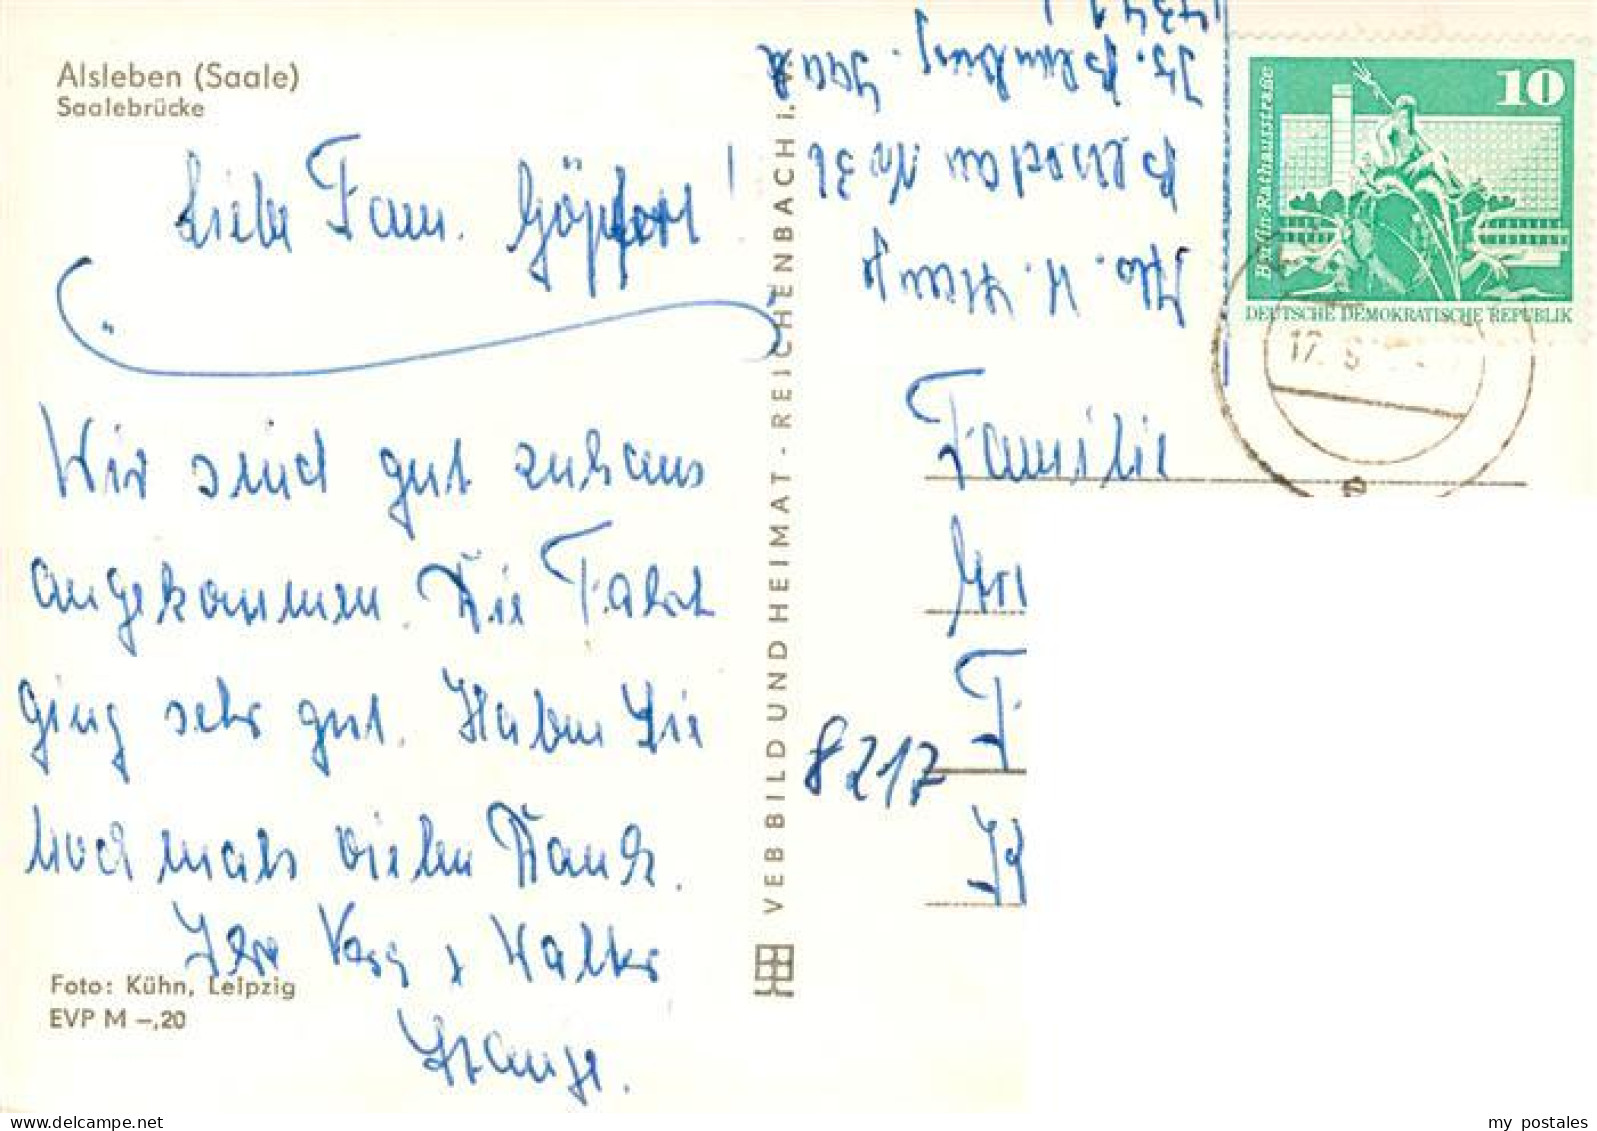 Alsleben (Saale)
Saalebrücke
Liebe Fam. Göpfert!
Wir sind gut zuhaus
angekommen. Die Fahrt
ging sehr gut. Haben Sie
noch mals vielen Dank.
Ihre &  Walter
Stange.
Foto: Kühn, Leipzig
EVP M –,20
VEB BILD UND HEIMAT · REICHENBACH i. V.
4341
Beesedau Nr 36
Stange
10
Berlin-Rathausstraße
DEUTSCHE DEMOKRATISCHE REPUBLIK
17.
Familie
8217
my postales